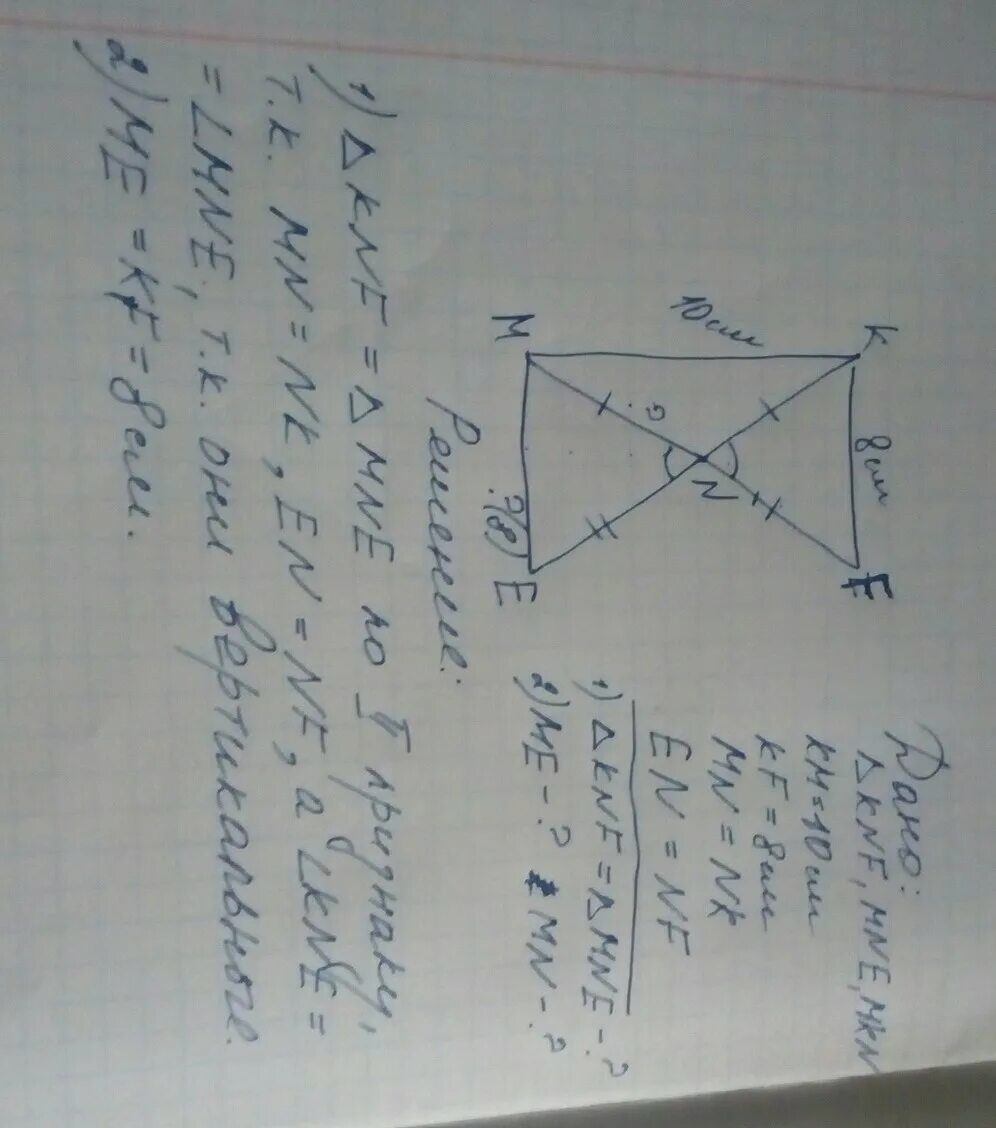 Дано:
△KNF, MNE, MKN
KM = 10см
KF = 8см
MN = NK
EN = NF
1) △KNF = △MNE - ?
2) ME - ? MN - ?
K
8см
F
10см
?
N
M
?(8)
E
Решение:
1) △KNF = △MNE по I признаку,
т.к. MN = NK, EN = NF, а ∠KNF =
= ∠MNE, т.к. они вертикальные.
2) ME = KF = 8см.